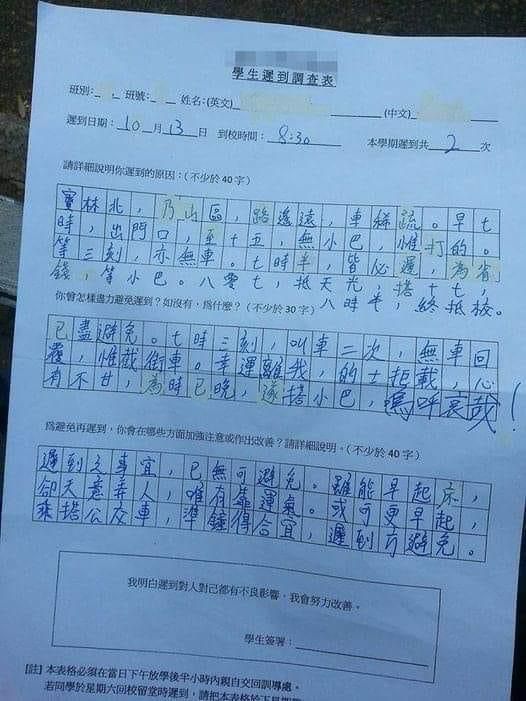 學生遲到調查表
班別: 班號: 姓名:(英文) (中文)
遲到日期: 10 月 13 日 到校時間: 8:30 本學期遲到共 2 次
請詳細說明你遲到的原因:(不少於 40 字)
寶林北,乃山區,路遙遠,車稀疏。早七
時,出門口,至十五,無小巴,惟打的。
等三刻,亦無車。七時半,皆必遲,為省
錢,等小巴。八零七,抵天光,搭十七,
八時半,終抵校。
你曾怎樣盡力避免遲到?如沒有,爲什麼?(不少於 30 字)
已盡避免。七時三刻,叫車二次,無車回
覆,惟截街車。幸運離我,的士拒載,心
有不甘,為時已晚,遂搭小巴,嗚呼哀哉!
爲避免再遲到,你會在哪些方面加強注意或作出改善?請詳細說明。(不少於 40 字)
遲到之事宜,已無可避免。雖能早起床,
卻天意弄人,唯有靠運氣。或可更早起,
乘搭公交車,準鐘得合宜,遲到可避免。
我明白遲到對人對己都有不良影響,我會努力改善。
學生簽署:
[註] 本表格必須在當日下午放學後半小時內親自交回訓導處。
若同學於星期六回校留堂時遲到,請把本表格於下星期